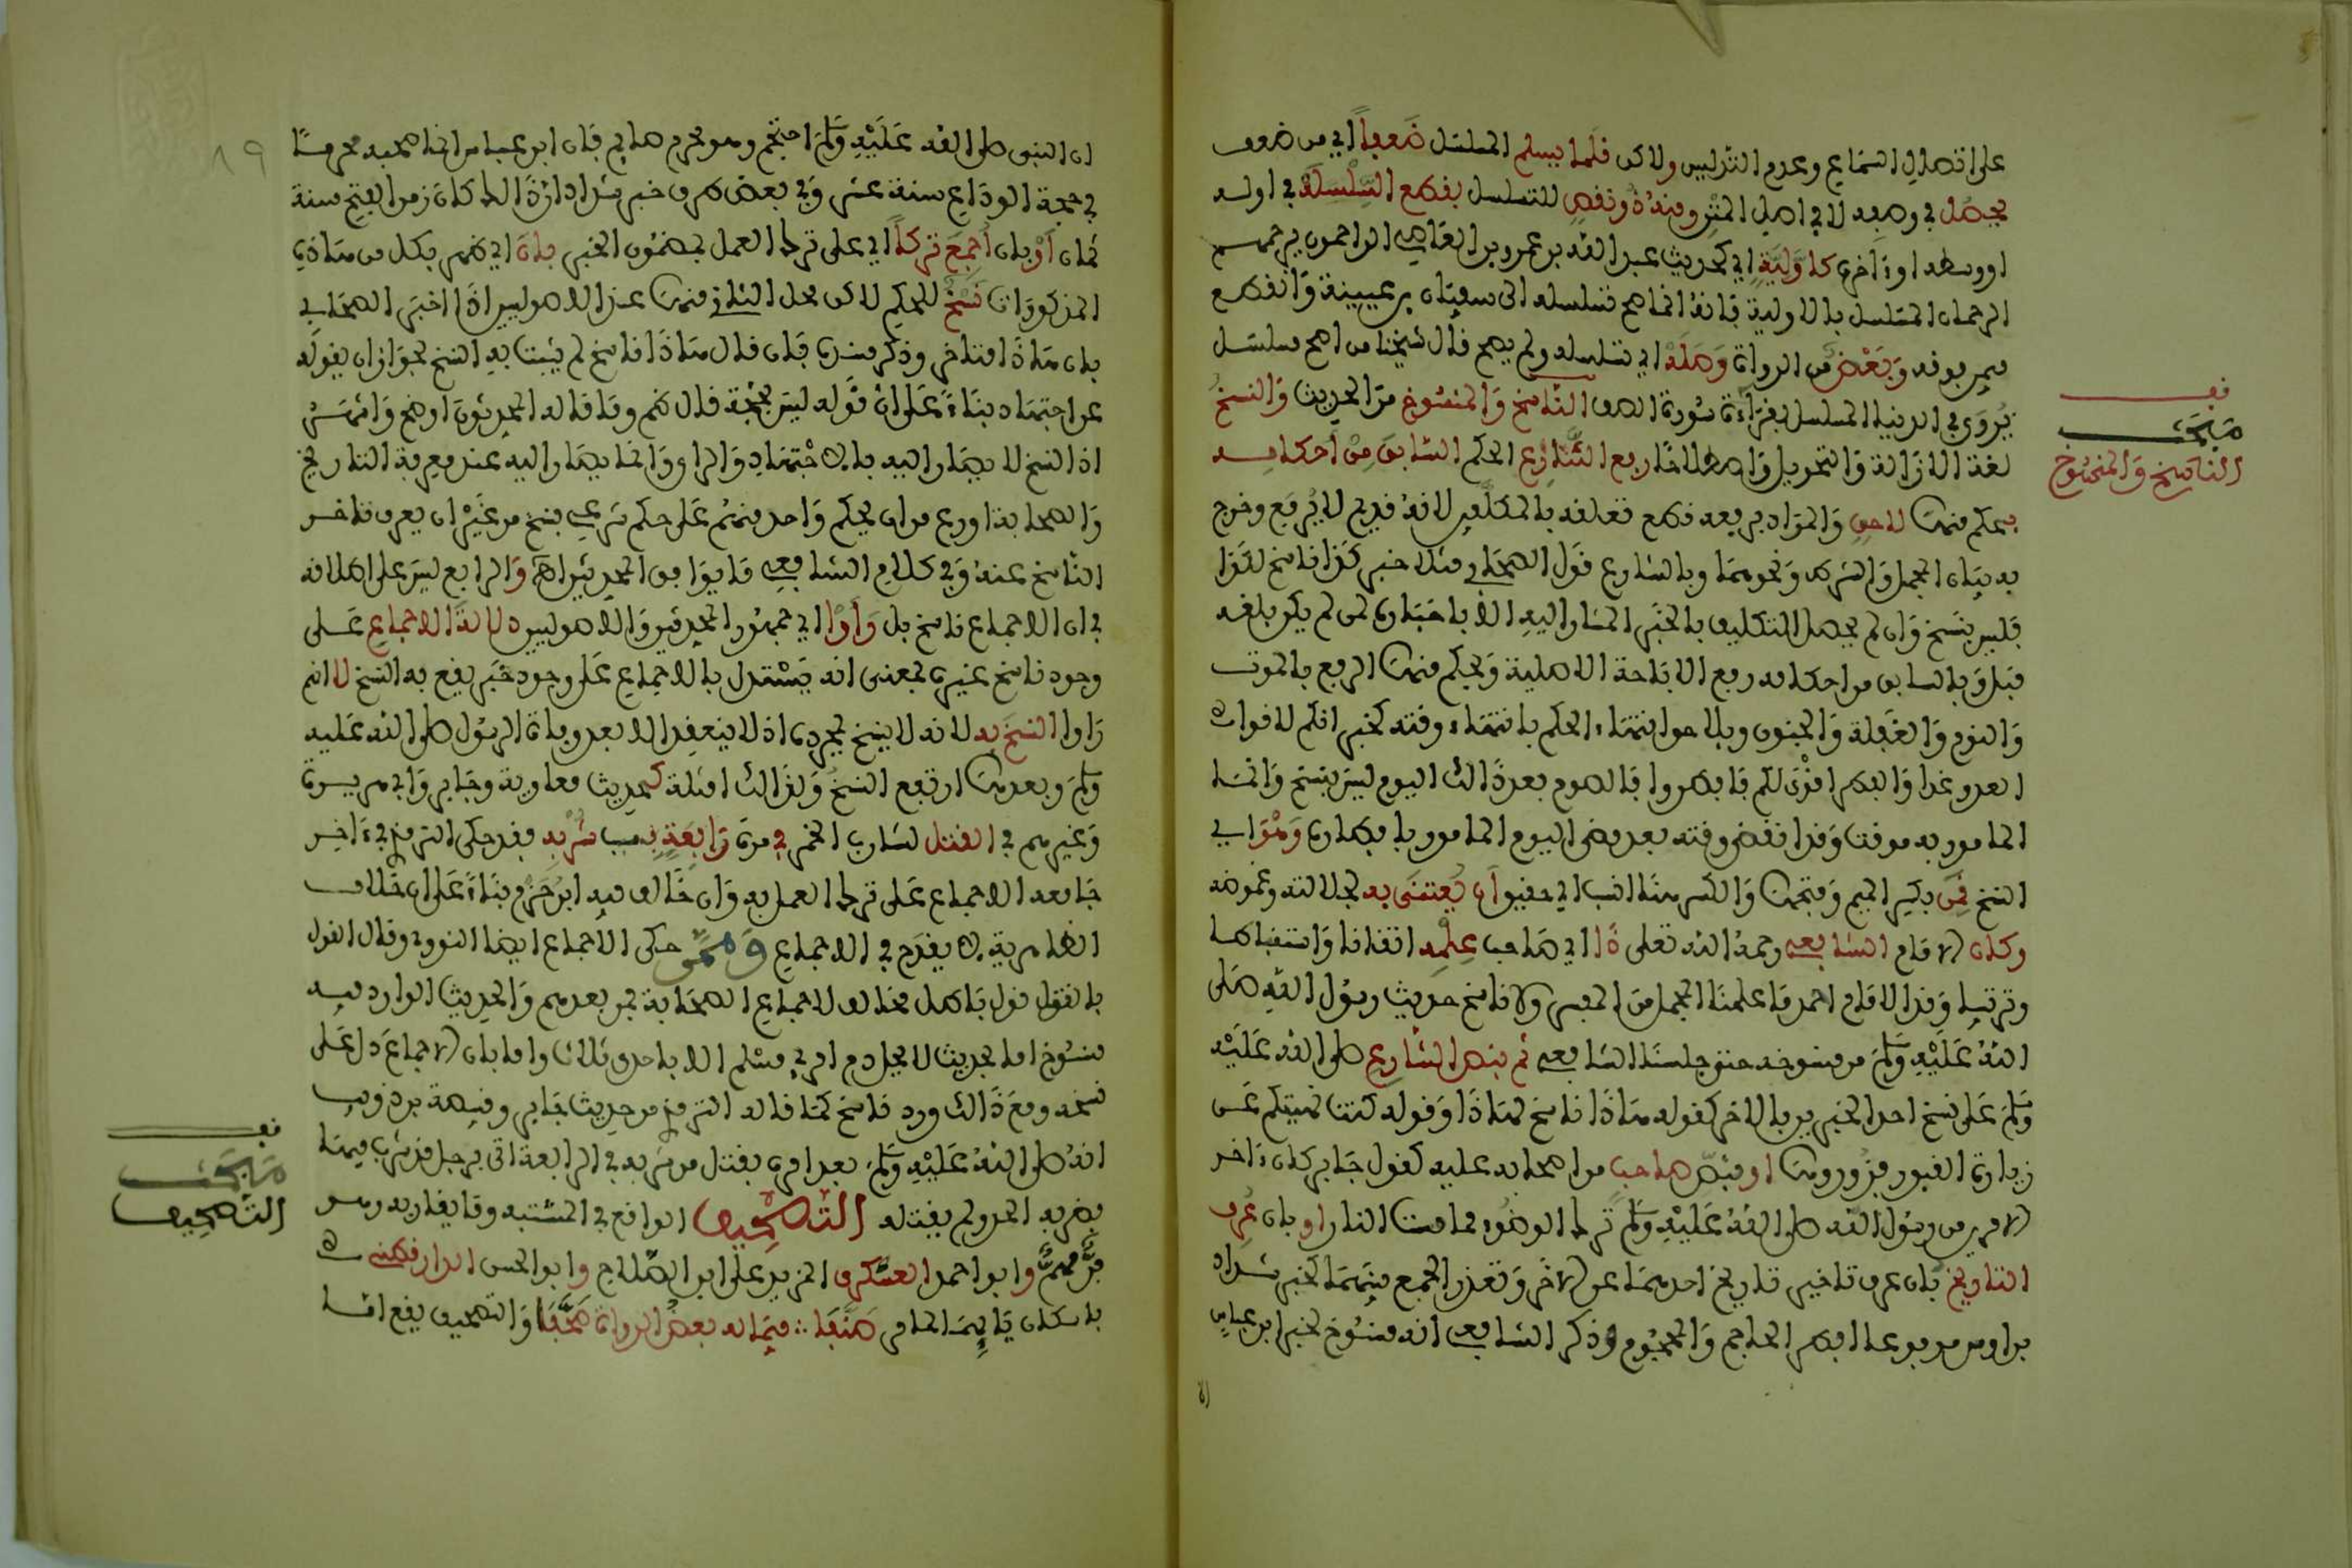 على اتصال السماع وعدم التدليس ولاكن قلما يسلم المسلسل ضعفا اي من ضعف
يحصل في وصفه لا في اصل المتن ومنه ذو نقص للتسلسل بقطع السلسلة في اوله
او وسطه او ءاخره كاولية اي كحديث عبد الله بن عمرو بن العاصي الراحمون يرحمهم
الرحمان المسلسل بالاولية فانه انما صح تسلسله الى سفيان بن عيينة وانقطع
فيمن فوقه وبعض من الرواة وصله اي تسلسله ولم يصح قال شيخنا من اصح مسلسل
يروى في الدنيا المسلسل بقراءة سورة الصف الناسخ والمنسوخ من الحديث والنسخ
لغة الازالة والتحويل واصطلاحا رفع الشارع الحكم السابق من احكامه
بحكم منها لاحق والمراد برفعه قطع تعلقه بالمكلفين لانه قديم لا يرفع وخرج
به بيان المجمل والشرط ونحوهما وبالشارع قول الصحابي مثلا خبر كذا ناسخ لكذا
فليس بنسخ وان لم يحصل التكليف بالخبر المشار اليه الا باخباره لمن لم يكن بلغه
قبل وبالسابق من احكامه رفع الاباحة الاصلية وبحكم منها الرفع بالموت
والنوم والغفلة والجنون وبلاحق انتهاء الحكم بانتهاء وقته كخبر انكم لاقوا
العدو غدا والفطر اقوى لكم فافطروا فالصوم بعد ذالك اليوم ليس بنسخ وانما
المامور به موقت وقد انقضى وقته بعد مضي اليوم المامور بافطاره وهو اي
النسخ قمن بكسر الميم وفتحها والكسر هنا انسب اي حقيق ان يعتنى به لجلالته وغموضه
وكان الامام الشافعي رحمه الله تعلى ذا اي صاحب علمه اتقانا واستنباطا
وترتيبا وقد قال الامام احمد ما علمنا المجمل من المفسر ولا ناسخ حديث رسول الله صلى
الله عليه وسلم من منسوخه حتى جلسنا الشافعي ثم بنص الشارع صلى الله عليه
وسلم على نسخ احد الخبرين بالاخر كقوله هاذا ناسخ لهاذا او قوله كنت نهيتكم عن
زيارة القبور فزوروها او بنص صاحب من اصحابه عليه كقول جابر كان ءاخر
الامرين من رسول الله صلى الله عليه وسلم ترك الوضوء مما مست النار او بان عرف
التاريخ بان عرف تاخير تاريخ احدهما عن الاخر وتعذر الجمع بينهما كخبر شداد
بن اوس مرفوعا افطر الحاجم والمحجوم وذكر الشافعي انه منسوخ بخبر ابن عباس
ان
قف
مبحث
الناسخ والمنسوخ
ان النبي صلى الله عليه وسلم احتجم وهو محرم صايم فان ابن عباس انما صحبه محرما
في حجة الوداع سنة عشر وفي بعض طرق خبر شداد ان ذالك كان زمن الفتح سنة
ثمان او بان اجمع تركا اي على ترك العمل بمضمون الخبر بان اي ظهر بكل من هاذه
المذكورات نسخ للحكم لاكن محل الثاني منها عند الاصوليين اذا اخبر الصحابي
بان هاذا متاخر وذكر مستنده فان قال هاذا ناسخ لم يثبت به النسخ لجواز ان يقوله
عن اجتهاد بناء على ان قوله ليس بحجة قال نظم وما قاله المحدثون اوضح واشهر
اذ النسخ لا يصار اليه بالاجتهاد والراي وانما يصار اليه عند معرفة التاريخ
والصحابة اورع من ان يحكم واحد منهم على حكم شرعي بنسخ من غير ان يعرف تاخر
الناسخ عنه وفي كلام الشافعي ما يوافق المحدثين اهـ والرابع ليس على اطلاقه
في ان الاجماع ناسخ بل راوا اي جمهور المحدثين والاصوليين دلالة الاجماع على
وجود ناسخ غيره بمعنى انه يستدل بالاجماع على وجود خبر يقع به النسخ لا انهم
راوا النسخ به لانه لا ينسخ بمجرده اذ لا ينعقد الا بعد وفاة الرسول صلى الله عليه
وسلم وبعدها ارتفع النسخ ولذالك امثلة كحديث معاوية وجابر وابي هريرة
وغيرهم في القتل لشارب الخمر في مرة رابعة بسبب شربه فقد حكى الترمذي في ءاخر
جامعه الاجماع على ترك العمل به وان خالف فيه ابن حزم بناء على ان خلاف
الظاهرية لا يقدح في الاجماع وممن حكى الاجماع ايضا النووي وقال القول
بالقتل قول باطل مخالف لاجماع الصحابة فمن بعدهم والحديث الوارد فيه
منسوخ اما بحديث لا يحل دم امرئ مسلم الا باحدى ثلاث واما بان الاجماع دل على
نسخه ومع ذالك ورد ناسخ كما قاله الترمذي من حديث جابر وقبيصة بن ذويب
انه صلى الله عليه وسلم بعد امره بقتل من شربه في الرابعة اتى برجل قد شرب فيها
فضربه الحد ولم يقتله التصحيف الواقع في المشتبه وما يقاربه وهو
فن مهم وابو احمد العسكري المزيد على ابن الصلاح وابو الحسن الدارقطني
باسكان ياءيهما الحامي صنفا :. فيما له بعض الرواة صحفا والتصحيف يقع اما
قف
مبحث
التصحيف
٨٩